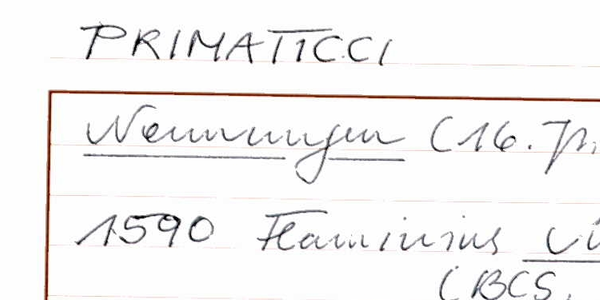 PRIMATICCI
Nennungen (16. Jh.
1590 Flaminius Vi
(BCS.